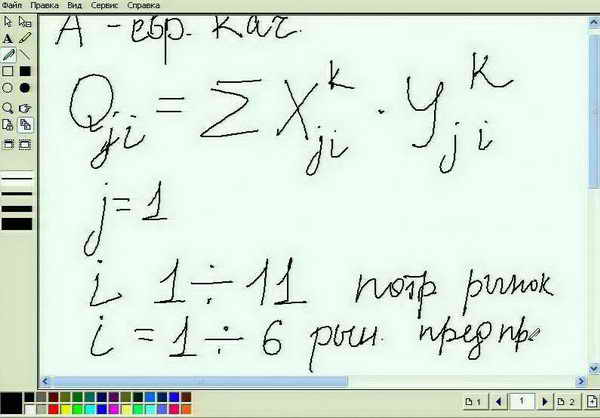 Файл Правка Вид Сервис Справка
А - евр. кач.
Q_{ji} = Σ X_{ji}^k · y_{ji}^k
j = 1
i 1 ÷ 11 потр рынок
i = 1 ÷ 6 рын. предпр
1 1 2